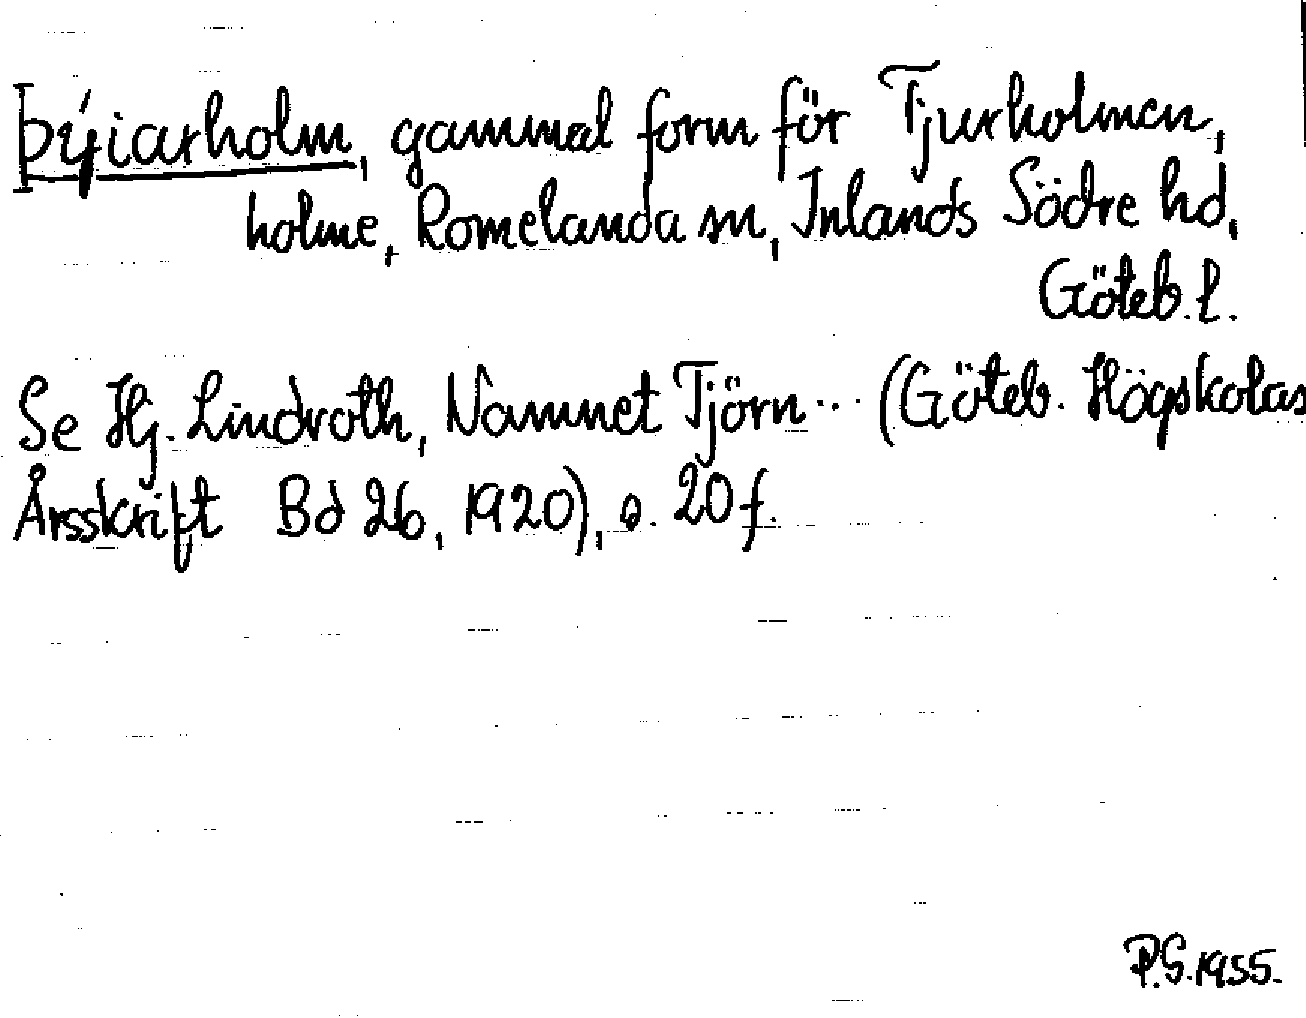 Þýiarholm, gammal form för Tjurholmen,
holme, Romelanda sn, Inlands Södre hd,
Göteb. l.
Se Hj. Lindroth, Namnet Tjörn... (Göteb. Högskolas
Årsskrift Bd 26, 1920), s. 20 f.
P.G. 1955.